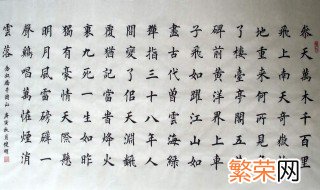 參天萬木千百里
飛上南天奇嶽故
地重來何所見多
了樓臺亭閣五井
碑前黃洋界上車
子飛如躍江山如
畫古代曾雲海綠
彈指三十八年人
間變了似天淵翻
覆猶記當時烽火
裏九死一生如昨
獨有豪情天際懸
明月風雷磅礴一
聲鷄唱萬怪煙消
雲落
念奴嬌井岡山 庚寅秋月